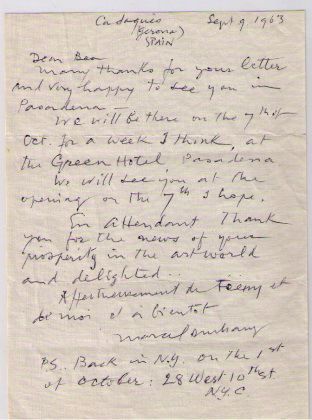 Cadaqués Sept 9 1963
(Gerona)
SPAIN
Dear Bea
Many thanks for your letter
and very happy to see you in
Pasadena —
We will be there on the 7th of
Oct. for a week I think, at
the Green Hotel Pasadena
We will see you at the
opening on the 7th I hope.
En attendant Thank
you for the news of your
prosperity in the art world
and delighted..
Affectueusement de Teeny et
de moi et à bientot
Marcel Duchamp
P.S. Back in N.Y. on the 1st
of October: 28 West 10th St.
N.Y.C